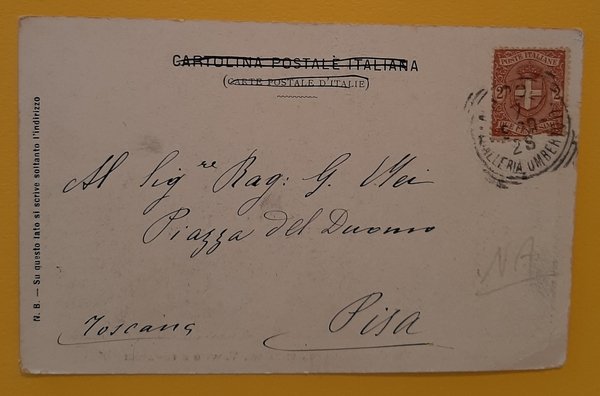 CARTOLINA POSTALE ITALIANA
(CARTE POSTALE D'ITALIE)
N. B. — Su questo lato si scrive soltanto l'indirizzo
POSTE ITALIANE
2 2
GALLERIA UMBERTO
Al Sigre Rag: G. Mei
Piazza del Duomo
Pisa
Toscana
NA